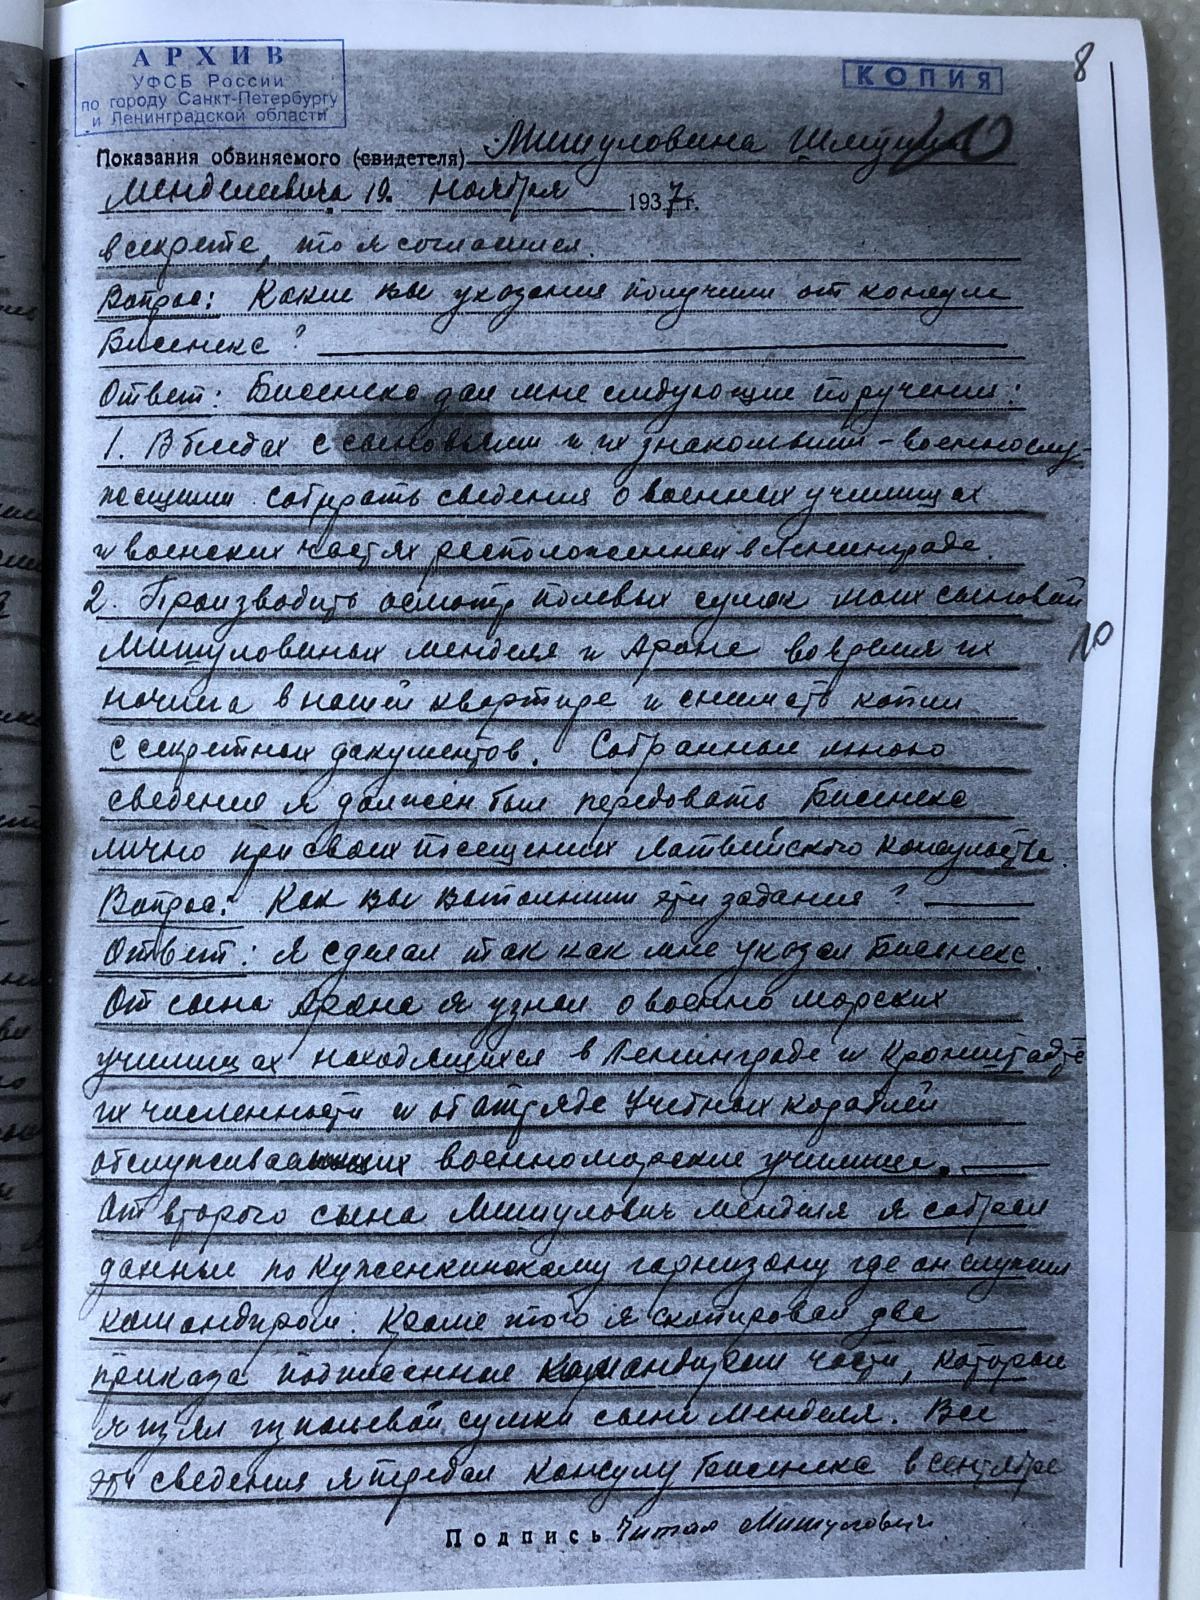 АРХИВ
УФСБ России
по городу Санкт-Петербургу
и Ленинградской области
КОПИЯ
8
Показания обвиняемого (свидетеля) Мишуловина
Менделевича 19. ноября 1937 г.
в секрете, что я согласился.
Вопрос: Какие вы указания получили от консула
Бисенекс?
Ответ: Бисенекс дал мне следующие поручения:
1. В беседах с сыновьями и их знакомыми - военнослу-
жащими собирать сведения о военных училищах
и воинских частях расположенных в Ленинграде.
2. Производить осмотр полевых сумок моих сыновей
Мишуловиных Менделя и Арона во время их
ночлега в нашей квартире и снимать копии
с секретных документов. Собранные мною
сведения я должен был передовать Бисенекс
лично при своих посещениях Латвийского консульства.
Вопрос: Как вы выполнили эти задания?
Ответ: Я сделал так как мне указал Бисенекс.
От сына Арона я узнал о военно морских
училищах находящихся в Ленинграде и Кронштадте
их численности и об отряде Учебных кораблей
обслуживающих военноморские училища.
От второго сына Мишулович Менделя я собрал
данные по Куженкинскому гарнизону где он служил
командиром. Кроме этого я скопировал два
приказа подписанные командиром части, которые
я взял из полевой сумки сына Менделя. Все
эти сведения я передал консулу Бисенекс в сентябре
Подпись Читал Мишулович